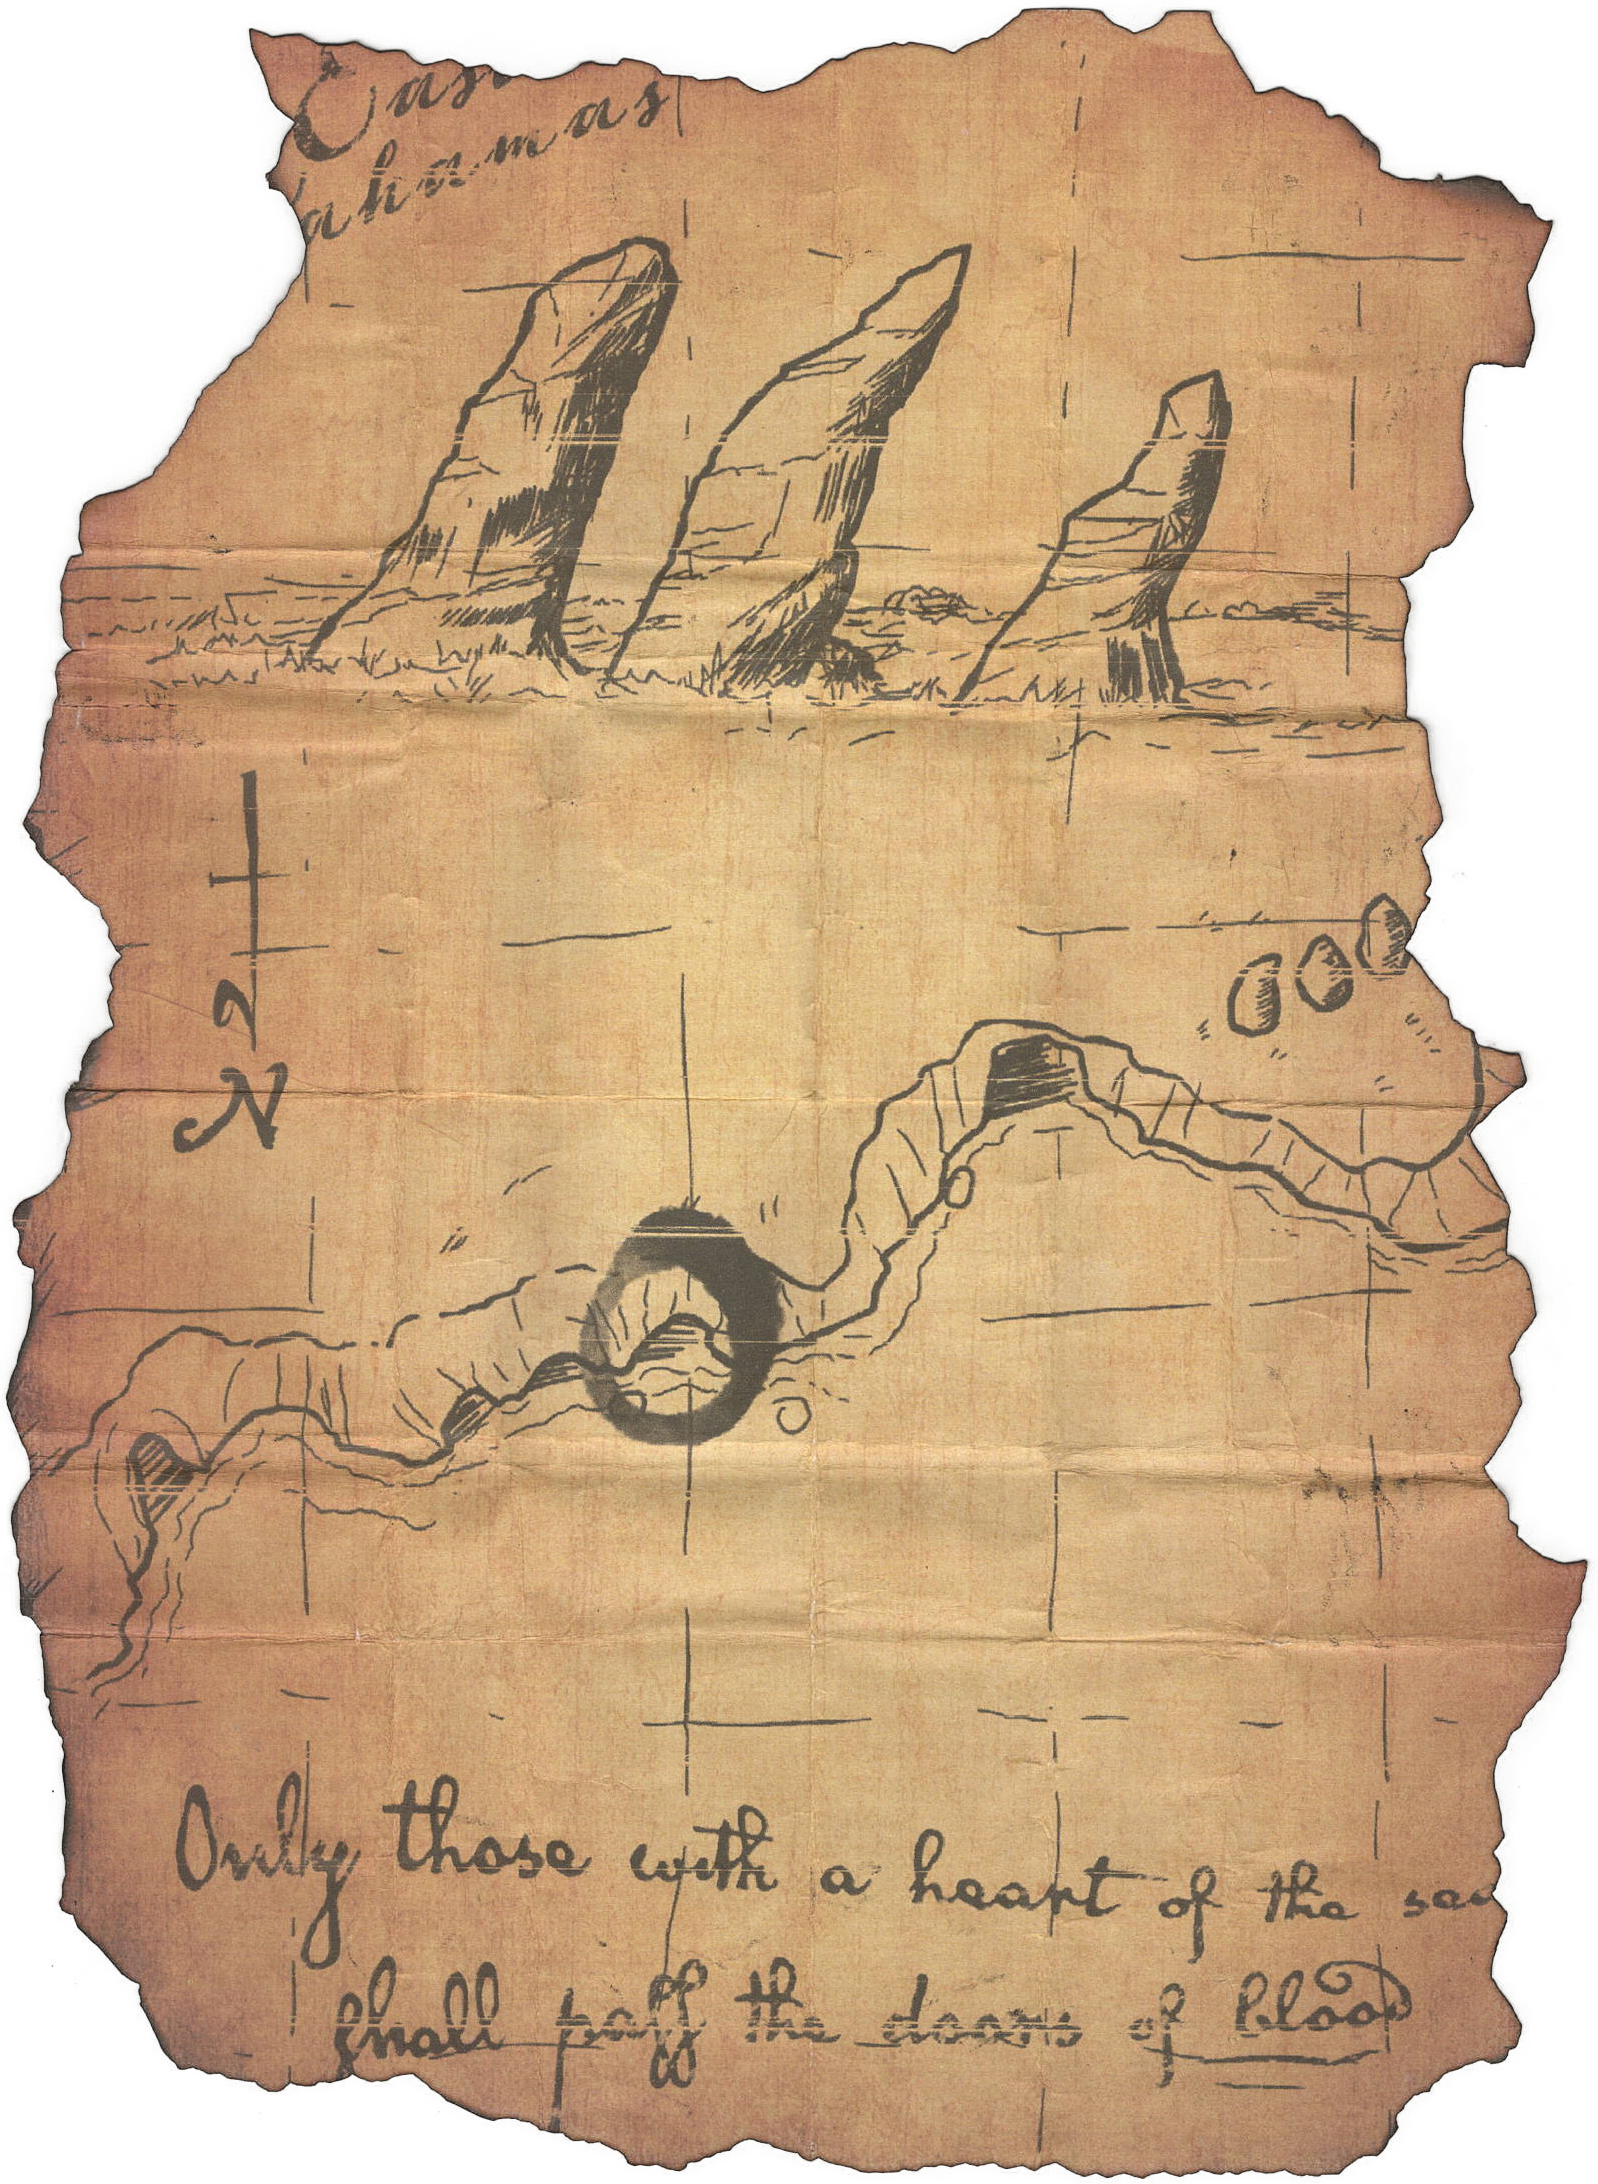 Eas
ahamas
N
Only those with a heart of the sea
ſhall paſſ the doors of blood